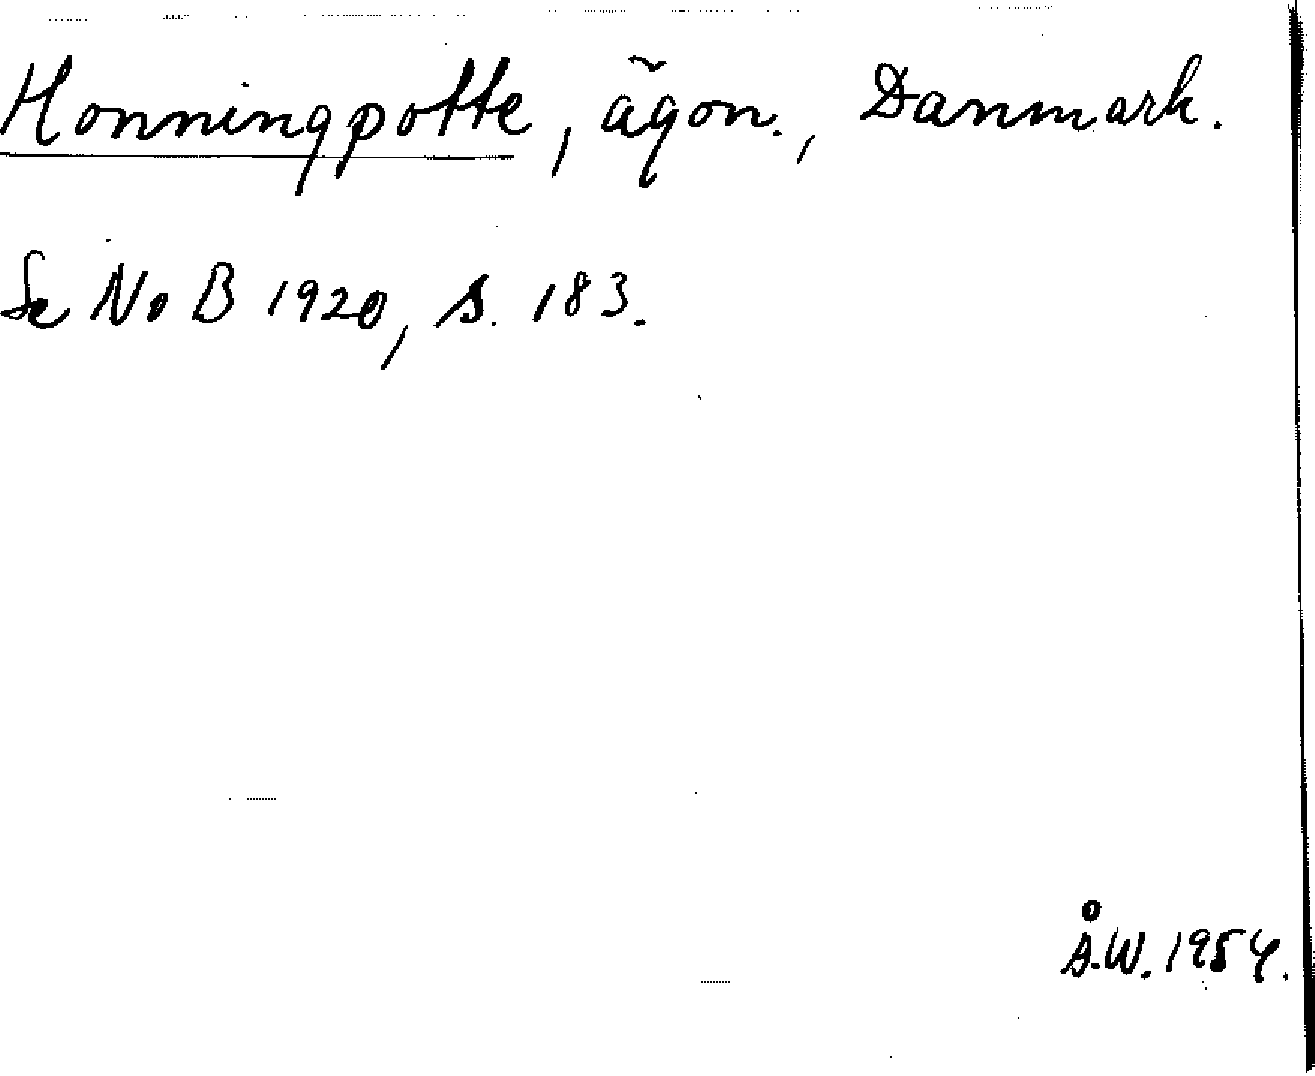 Honningpotte, ägon., Danmark.
Se NoB 1920, s. 183.
Å.W. 1954.